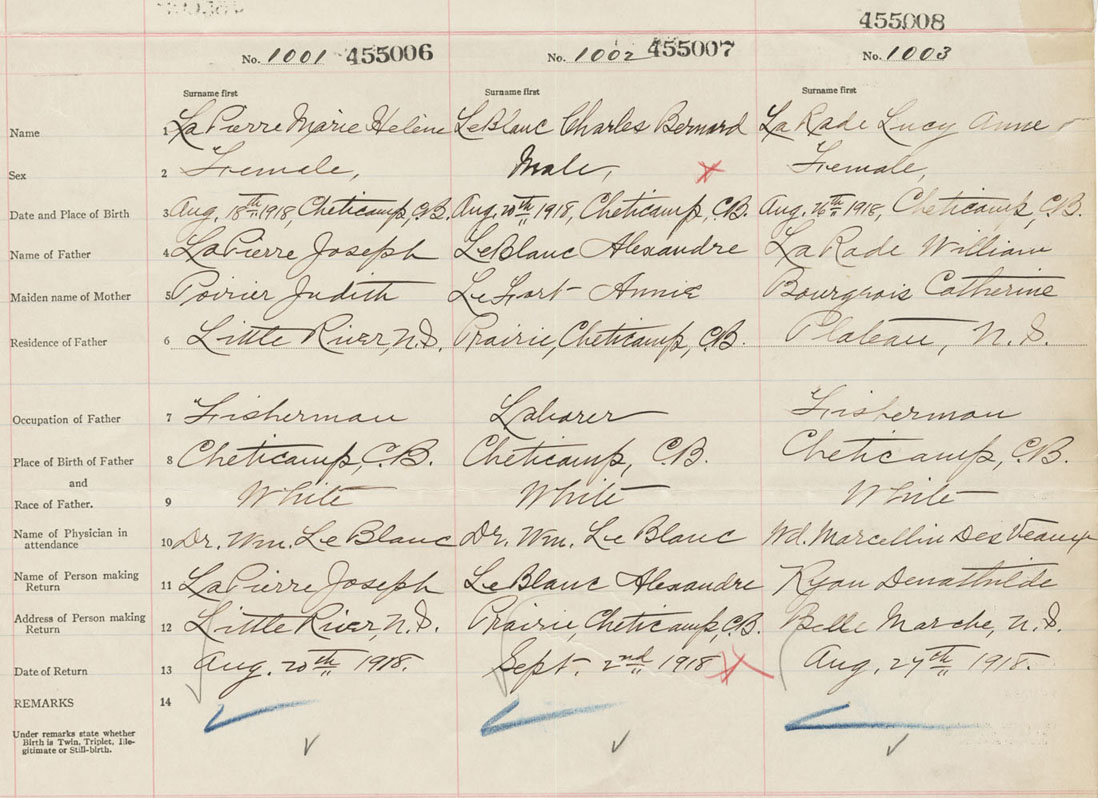 455008
No. 1001 455006 No. 1002 455007 No. 1003
Surname first Surname first Surname first
Name 1 LaPierre Marie Helène LeBlanc Charles Bernard LaRade Lucy Anne
Sex 2 Female, Male, Female,
Date and Place of Birth 3 Aug. 18th 1918, Cheticamp, C.B. Aug. 20th 1918, Cheticamp, C.B. Aug. 26th 1918, Cheticamp, C.B.
Name of Father 4 LaPierre Joseph LeBlanc Alexandre LaRade William
Maiden name of Mother 5 Poirier Judith LeFort Annie Bourgeois Catherine
Residence of Father 6 Little River, N.S. Prairie, Cheticamp, C.B. Plateau, N.S.
Occupation of Father 7 Fisherman Laborer Fisherman
Place of Birth of Father 8 Cheticamp, C.B. Cheticamp, C.B. Cheticamp, C.B.
and
Race of Father. 9 White White White
Name of Physician in
attendance 10 Dr. Wm. LeBlanc Dr. Wm. LeBlanc Wd. Marcellin DesVeaux
Name of Person making
Return 11 LaPierre Joseph LeBlanc Alexandre Ryan
Address of Person making
Return 12 Little River, N.S. Prairie, Cheticamp, C.B. Belle Marche, N.S.
Date of Return 13 Aug. 20th 1918. Sept. 2nd 1918 Aug. 27th 1918.
REMARKS 14
Under remarks state whether
Birth is Twin, Triplet, Ille-
gitimate or Still-birth.